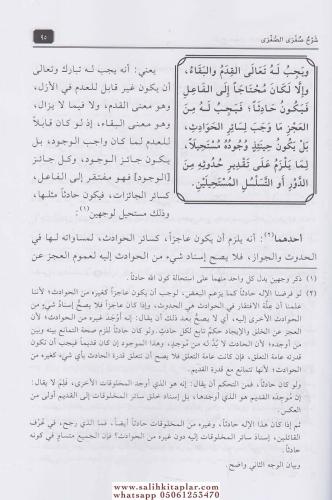 شَرْحُ صُغْرَى الصُّغْرَى
٩٥
وَيَجِبُ لَهُ تَعَالَى القِدَمُ وَالبَقَاءُ،
وَإِلَّا لَكَانَ مُحْتَاجًا إِلَى الفَاعِلِ
فَيَكُونُ حَادِثًا؛ فَيَجِبُ لَهُ مِنَ
العَجْزِ مَا وَجَبَ لِسَائِرِ الحَوَادِثِ،
بَلْ يَكُونُ حِينَئِذٍ وُجُودُهُ مُسْتَحِيلًا،
لِمَا يَلْزَمُ عَلَى تَقْدِيرِ حُدُوثِهِ مِنَ
الدَّوْرِ أَوِ التَّسَلْسُلِ المُسْتَحِيلَيْنِ.
يعني: أنه يجب لـه تبارك وتعالى
أن يكون غير قابل للعدم في الأزل،
وهو معنى القدم، ولا فيما لا يزال،
وهو معنى البقاء، إذ لو كان قابلاً
للعدم لما كان واجب الوجود، بل
يكون جائز الوجود، وكل جائز
[الوجود] فهو مفتقر إلى الفاعل،
كسائر الجائزات، فيكون حادثاً مثلها،
وذلك مستحيل لوجهين(١):
أحدهما(٢): أنه يلزم أن يكون عاجزاً، كسائر الحوادث، لمساواته لها في
الحدوث والجواز، فلا يصح إسناد شيء من الحوادث إليه لعموم العجز عن
(١) ذكر وجهين يدل كل واحد منهما على استحالة كون الله حادثاً.
(٢) لو فرضنا الإله حادثاً كما يزعم البعض، لوجب أن يكون عاجزاً كغيره من الحوادث؛ لأننا
علمنا أن علة الافتقار في الحوادث هي الحدوث، وإذا كان عاجزاً فلا يصح إسناد شيء من
الحوادث الأخرى إليه، أي لا يصح بعد ذلك أن يقال: إنه أوجد غيره من الحوادث؛ لأن
العجز عن الخلق والإيجاد حكم تابع لكل حادث. ولو كان حادثاً للزم صحة التمانع بينه وبين
من أوجده؛ لأن الحادث لا بد له من مُوجِد، وهذا الموجد إن كان قديماً فيجب أن تكون
قدرته عامة التعلق، فإن كانت عامة التعلق فلا يصح أن تتعلق قدرة الحادث بأي شيء كغيره من
الحوادث؛ لأنها تتمانع مع قدرة القديم.
ولو كان حادثاً، فمن التحكم أن يقال: إنه هو الذي أوجد المخلوقات الأخرى، فلِمَ لا يقال:
إن مُوجِده القديم هو الذي أوجدها، بل إسناد خلق سائر المخلوقات إلى القديم أولى من
العكس.
ثم إذا كان هذا الإله حادثاً، وغيره من المخلوقات حادثاً أيضاً، فما الذي رجح، في عُرْف
القائلين، إسناد سائر المخلوقات إليه دون غيره من الحوادث؟ فإن الجميع متساوٍ في كونه
حادثاً.
وبيان الوجه الثاني واضح.
www.salihkitaplar.com
whatsapp 05061253470